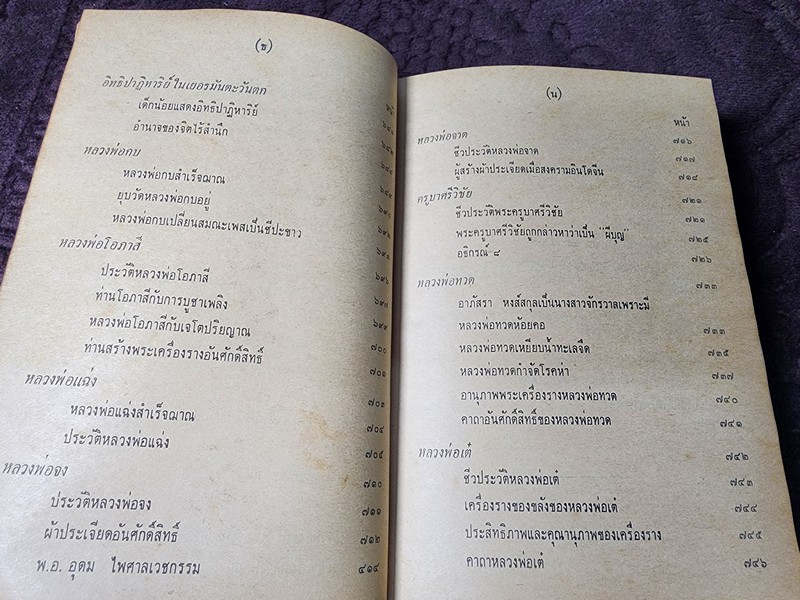 (ช)
อิทธิปาฏิหาริย์ในเยอรมันตะวันตก
หน้า
เด็กน้อยแสดงอิทธิปาฏิหาริย์ ๖๘๑
อำนาจของจิตไร้สำนึก ๖๘๒
หลวงพ่อกบ ๖๘๘
หลวงพ่อกบสำเร็จฌาณ ๖๘๙
ยุบวัดหลวงพ่อกบอยู่ ๖๙๑
หลวงพ่อกบเปลี่ยนสมณะเพสเป็นชีปะขาว ๖๙๒
หลวงพ่อโอภาสี ๖๙๓
ประวัติหลวงพ่อโอภาสี ๖๙๖
ท่านโอภาสีกับการบูชาเพลิง ๖๙๗
หลวงพ่อโอภาสีกับเจโตปริยญาณ ๖๙๙
ท่านสร้างพระเครื่องรางอันศักดิ์สิทธิ์ ๗๐๐
หลวงพ่อแฉ่ง ๗๐๑
หลวงพ่อแฉ่งสำเร็จฌาณ ๗๐๓
ประวัติหลวงพ่อแฉ่ง ๗๐๔
หลวงพ่อจง ๗๐๕
ประวัติหลวงพ่อจง ๗๑๐
ผ้าประเจียดอันศักดิ์สิทธิ์ ๗๑๑
พ.อ. อุดม ไพศาลเวชกรรม ๗๑๒
๔๑๔
(น)
หน้า
หลวงพ่อจาด ๗๑๖
ชีวประวัติหลวงพ่อจาด ๗๑๗
ผู้สร้างผ้าประเจียดเมื่อสงครามอินโดจีน ๗๑๘
ครูบาศรีวิชัย ๗๒๑
ชีวประวัติพระครูบาศรีวิชัย ๗๒๑
พระครูบาศรีวิชัยถูกกล่าวหาว่าเป็น "ผีบุญ" ๗๒๕
อธิกรณ์ ๘ ๗๒๖
หลวงพ่อทวด ๗๓๓
อาภัสรา หงส์สกุลเป็นนางสาวจักรวาลเพราะมี
หลวงพ่อทวดห้อยคอ ๗๓๓
หลวงพ่อทวดเหยียบน้ำทะเลจืด ๗๓๕
หลวงพ่อทวดกำจัดโรคห่า ๗๓๗
อานุภาพพระเครื่องรางหลวงพ่อทวด ๗๔๐
คาถาอันศักดิ์สิทธิ์ของหลวงพ่อทวด ๗๔๑
หลวงพ่อเต๋ ๗๔๒
ชีวประวัติหลวงพ่อเต๋ ๗๔๓
เครื่องรางของขลังของหลวงพ่อเต๋ ๗๔๔
ประสิทธิภาพและคุณานุภาพของเครื่องราง ๗๔๕
คาถาหลวงพ่อเต๋ ๗๔๖